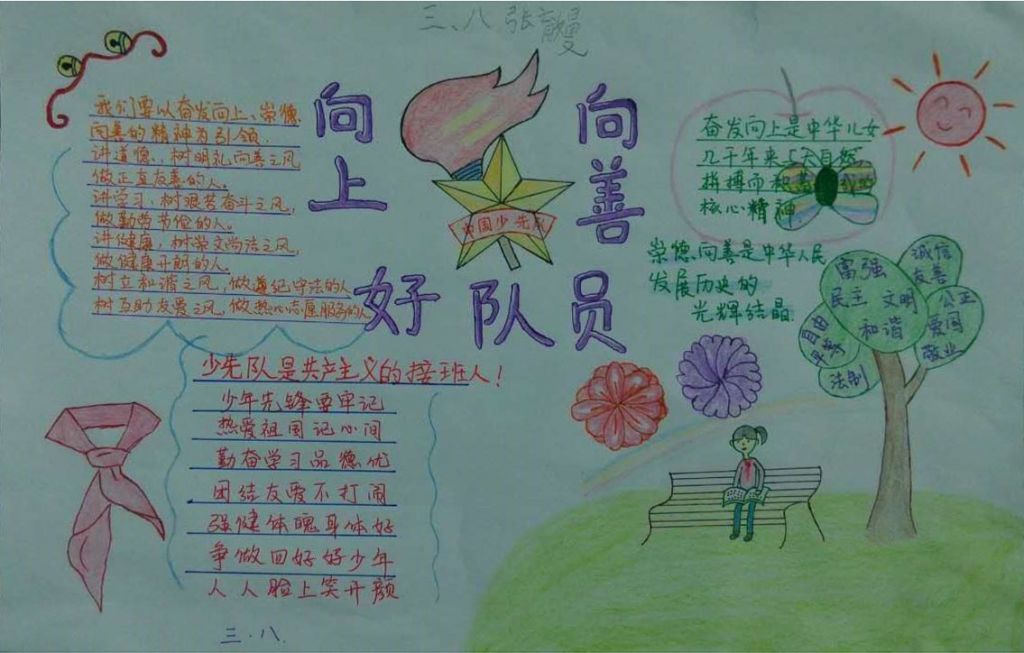 三.八 张
向上
向善
好队员
中国少先队
我们要以奋发向上、崇德
向善的精神为引领.
讲道德、树明礼向善之风
做正直友善的人.
讲学习,树艰苦奋斗之风,
做勤劳节俭的人.
讲健康,树崇文尚法之风,
做健康开朗的人.
树立和谐之风,做遵纪守法的人
树互助友爱之风,做热心志愿服务的人
奋发向上是中华儿女
几千年来
拼搏而
核心精神
崇德、向善是中华人民
发展历史的
光辉结晶.
富强
民主 文明
和谐
诚信
友善
公正
爱国
敬业
自由
平等
法制
少先队是共产主义的接班人!
少年先锋要牢记
热爱祖国记心间
勤奋学习品德优
团结友爱不打闹
强健体魄身体好
争做回好好少年
人人脸上笑开颜
三.八.